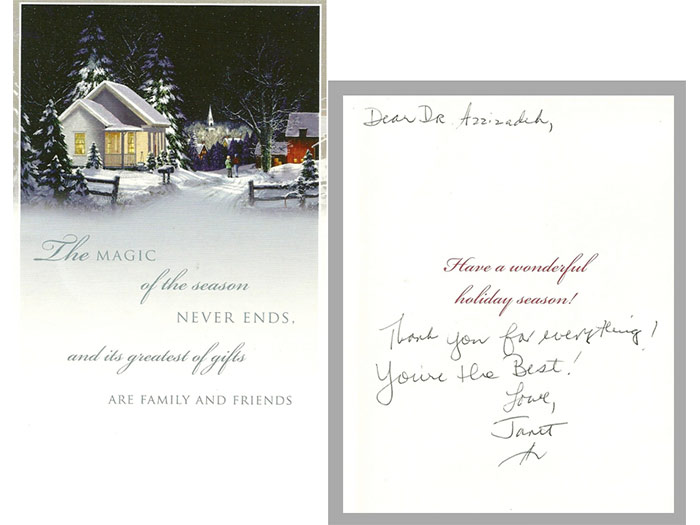 The MAGIC
of the season
NEVER ENDS,
and its greatest of gifts
ARE FAMILY AND FRIENDS
Dear DR. Azzizadeh,
Have a wonderful
holiday season!
Thank you for everything!
You're the Best!
Love,
Janet